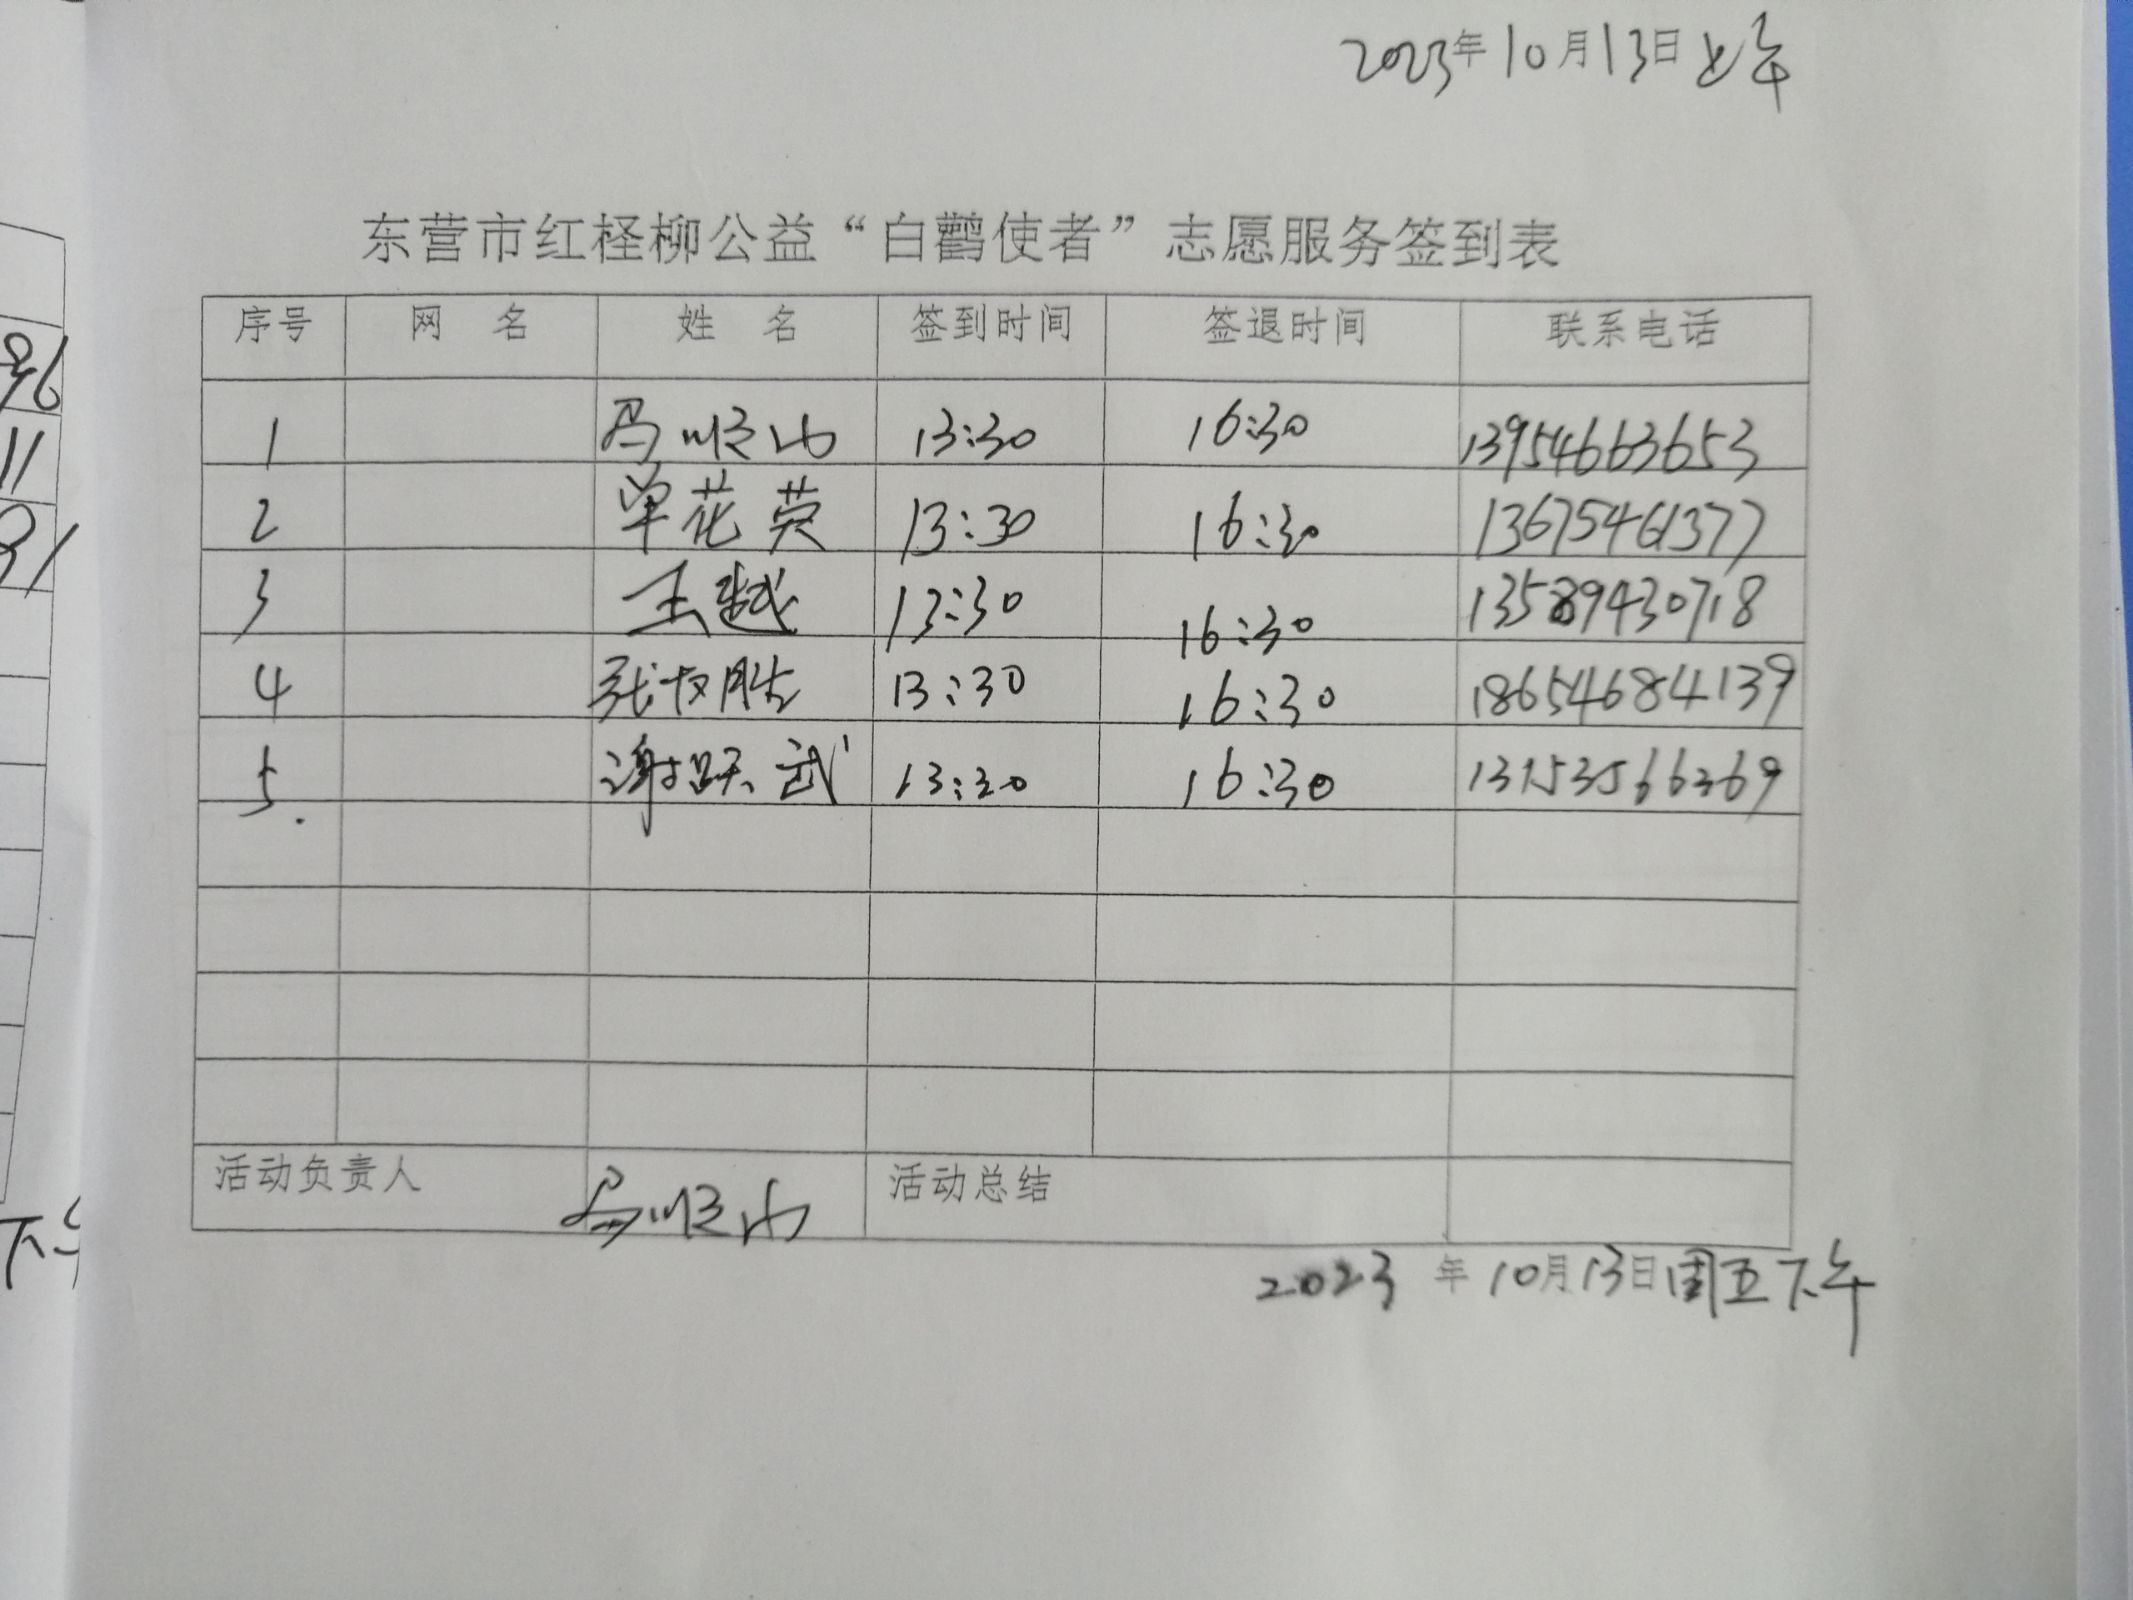 2023年10月13日上午
东营市红柽柳公益“白鹳使者”志愿服务签到表
序号 网 名 姓 名 签到时间 签退时间 联系电话
1 冯顺山 13:30 16:30 13954663653
2 单花英 13:30 16:30 13675461377
3 王越 13:30 16:30 13589430718
4 张友胜 13:30 16:30 18654684139
5. 谢跃武 13:30 16:30 13153566369
活动负责人 冯顺山 活动总结
2023 年 10月13日周五下午
96
11
91
下午